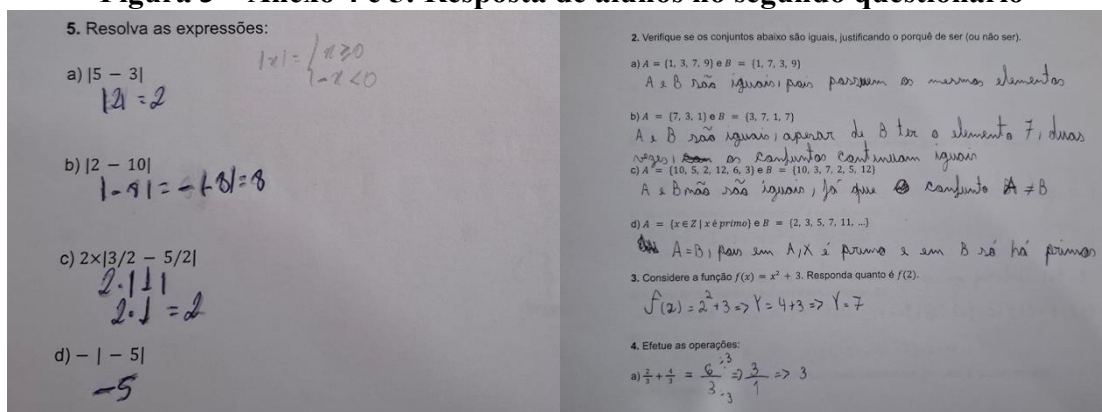 Figura 3 – Anexo 4 e 5: Resposta de alunos no segundo questionário
5. Resolva as expressões:
|x| = { x ≥ 0
-x < 0
a) |5 − 3|
|2| = 2
b) |2 − 10|
|-8| = -(-8) = 8
c) 2×|3/2 − 5/2|
2·|1|
2·1 = 2
d) − | − 5|
-5
2. Verifique se os conjuntos abaixo são iguais, justificando o porquê de ser (ou não ser).
a) A = {1, 3, 7, 9} e B = {1, 7, 3, 9}
A e B são iguais, pois possuem os mesmos elementos
b) A = {7, 3, 1} e B = {3, 7, 1, 7}
A e B são iguais, apesar de B ter o elemento 7, duas
vezes, os conjuntos continuam iguais
c) A = {10, 5, 2, 12, 6, 3} e B = {10, 3, 7, 2, 5, 12}
A e B não são iguais, já que o conjunto A ≠ B
d) A = {x ∈ Z | x é primo} e B = {2, 3, 5, 7, 11, ...}
A = B, pois em A, X é primo e em B só há primos
3. Considere a função f(x) = x² + 3. Responda quanto é f(2).
f(2) = 2² + 3 => Y = 4+3 => Y = 7
4. Efetue as operações:
a) 2/3 + 4/3 = 6/3 ÷3/÷3 => 3/1 => 3